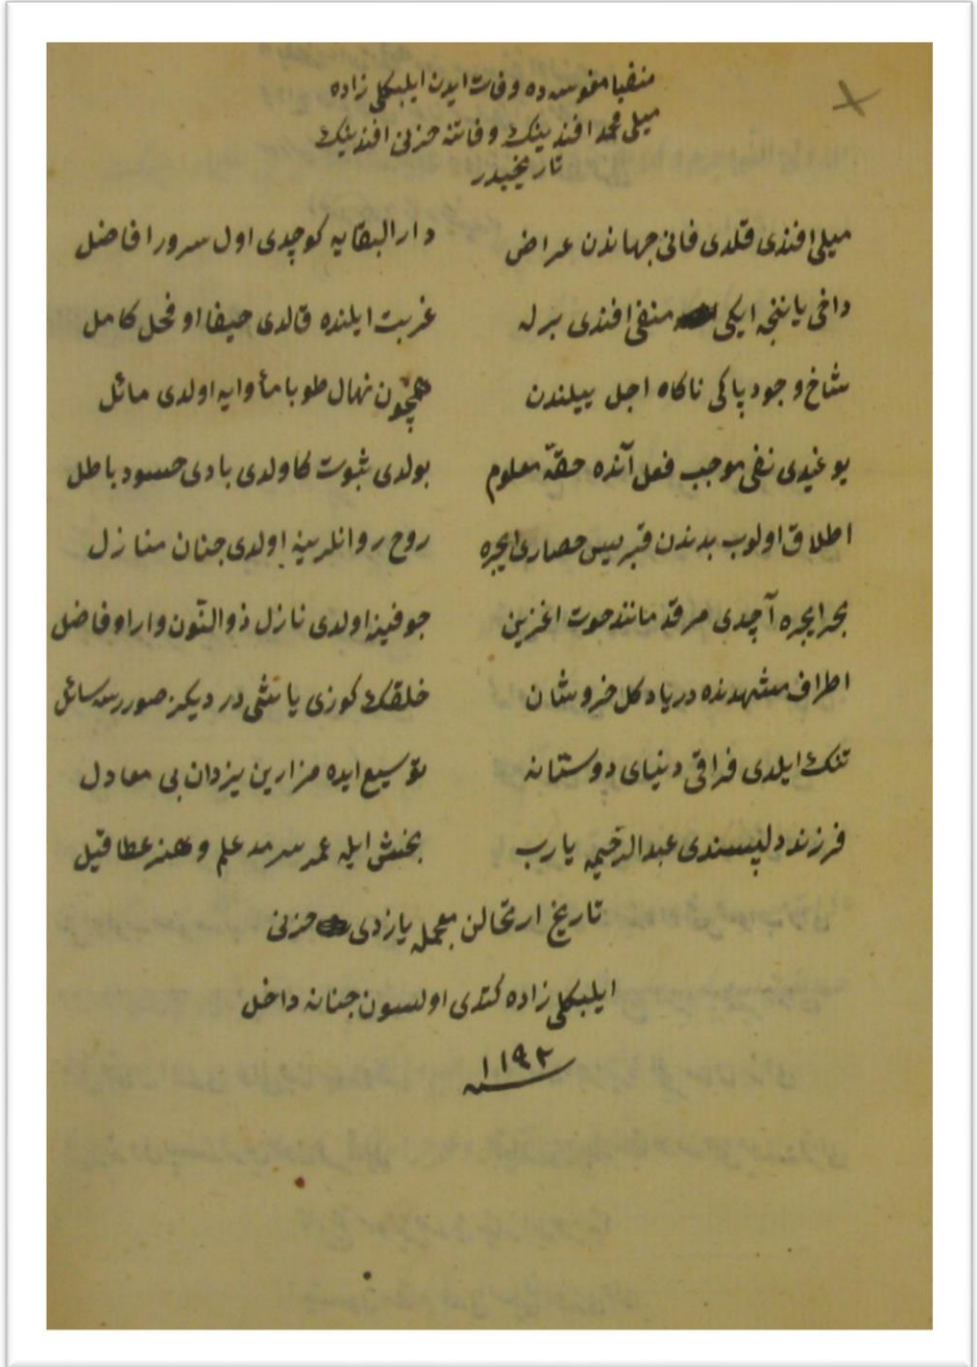 منفیا مغوسه ده وفات ایدن ایلبکلی زاده
میلی محمد افندینك وفاتنه حزنی افندینك
تاریخیدر
میلی افندی قلدی فانی جهاندن عراض دار البقایه كوچدی اول سرور افاضل
داخی یاننجه ایكی منفی افندی برله غربت ایلنده قالدی حیفا او فحل كامل
شاخ وجود پاكی ناكاه اجل ییلندن همچون نهال طوبا مأوایه اولدی مائل
یوغیدی نفی موجب فعل آنده حقه معلوم بولدی ثبوت كاولدی بادی حسود باطل
اطلاق اولوب بدندن قبریس حصاری ایچره روح روانلرینه اولدی جنان منازل
بحر ایچره آچدی مرقد مانند حوت اغزین جوفینه اولدی نازل ذو النون وار او فاضل
اطراف مشهدنده دریا دكل خروشان خلقك كوزی یاشی در دیكز صوررسه سائل
تنك ایلدی فراقی دنیای دوستانه توسیع ایده مزارین یزدان بی معادل
فرزند دلپسندی عبد الرحیمه یارب بخش ایله عمر سرمد علم و هنر عطا قیل
تاریخ ارتحالن معجمله یازدی حزنی
ایلبكلی زاده كتدی اولسون جنانه داخل
۱۱۹۲